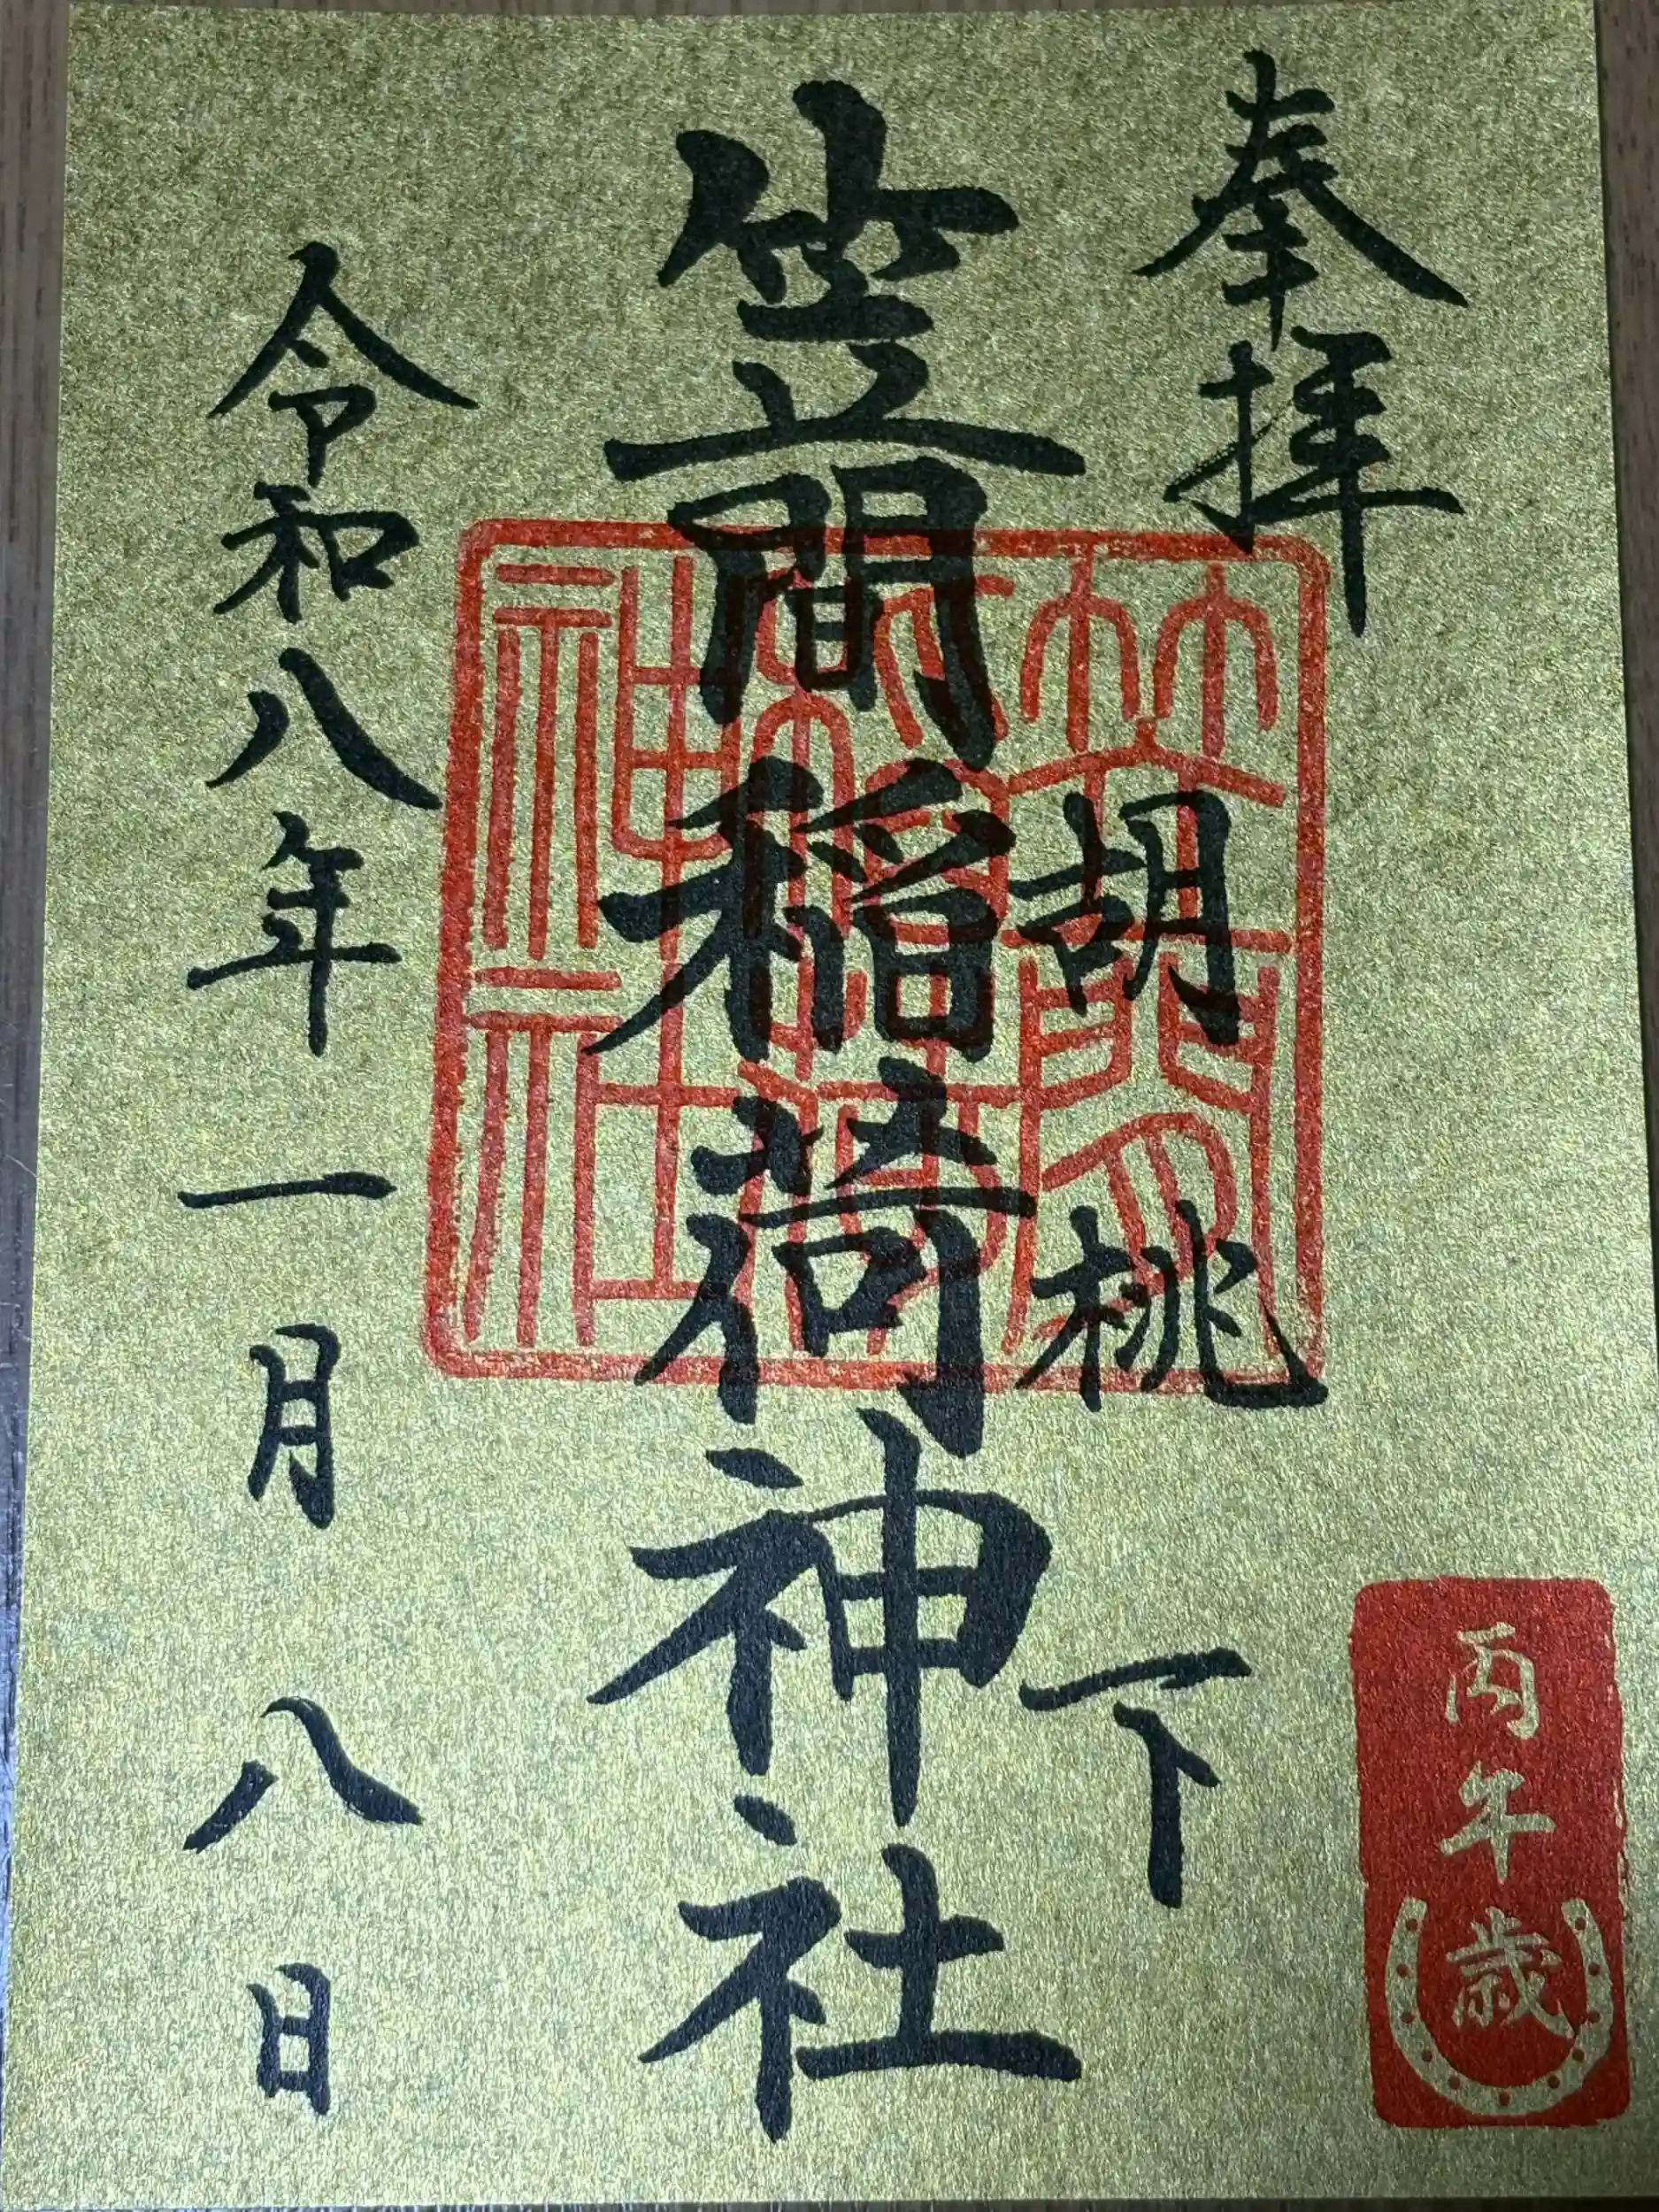 奉拝
胡桃下
笠間稲荷神社
令和八年一月八日
丙午歳
笠間稲荷神社